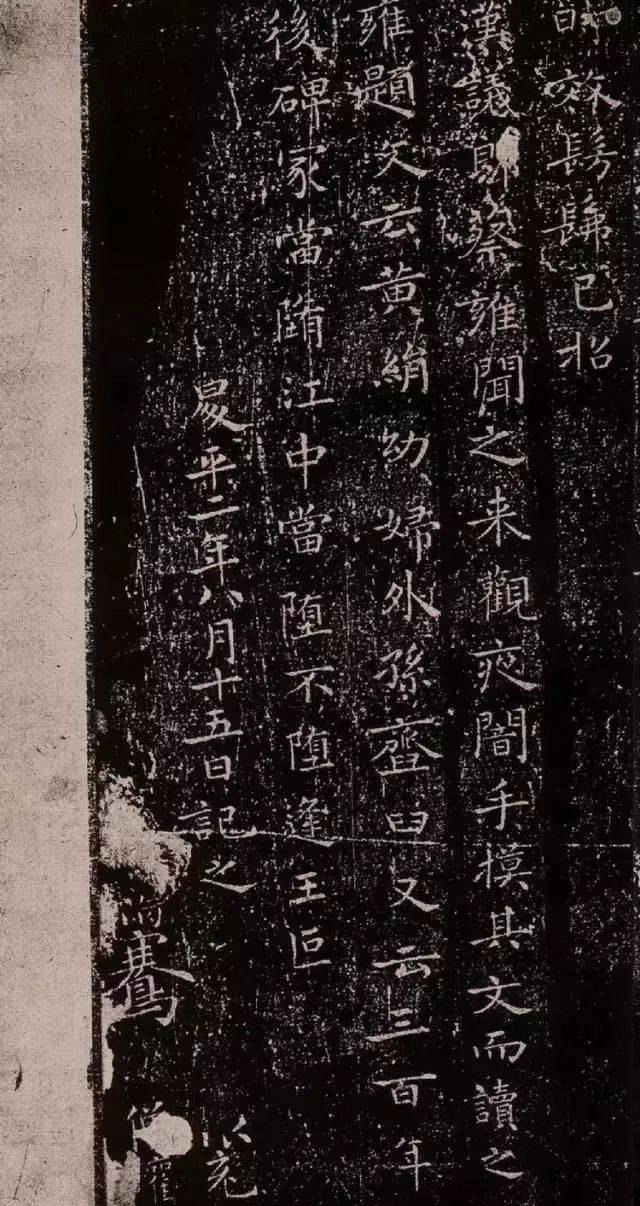 時效髣髴已招
漢議郎蔡雍聞之来觀夜闇手摸其文而讀之
雍題文云黄絹幼婦外孫韲臼又云三百年
後碑冢當墮江中當墮不墮逢王叵
昇平二年八月十五日記之
騫
僧權
以充